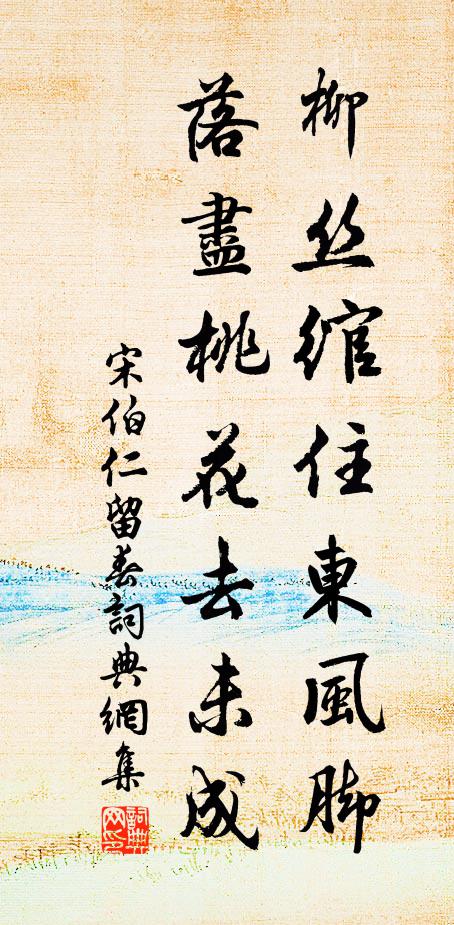 柳丝绾住東風脚
落盡桃花去未成
宋伯仁留春詞典網集
詞典网印